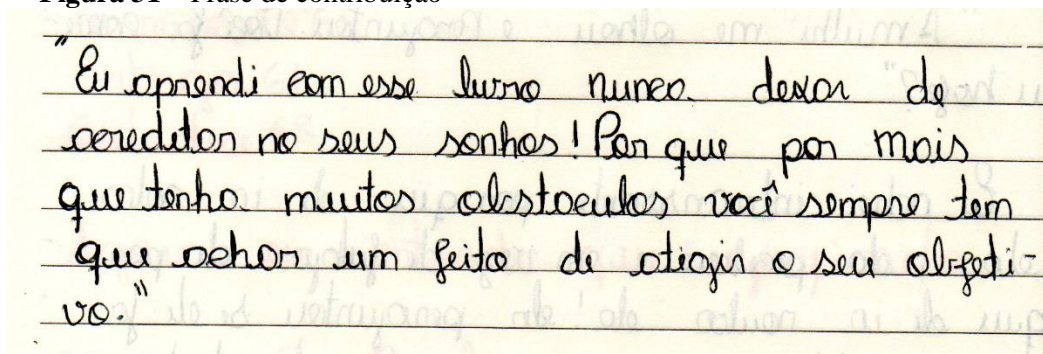 "Eu aprendi com esse livro nunca dexar de
acreditar no seus sonhos! Por que por mais
que tenha muitos obstaculos você sempre tem
que achar um jeito de atigir o seu objeti-
vo."